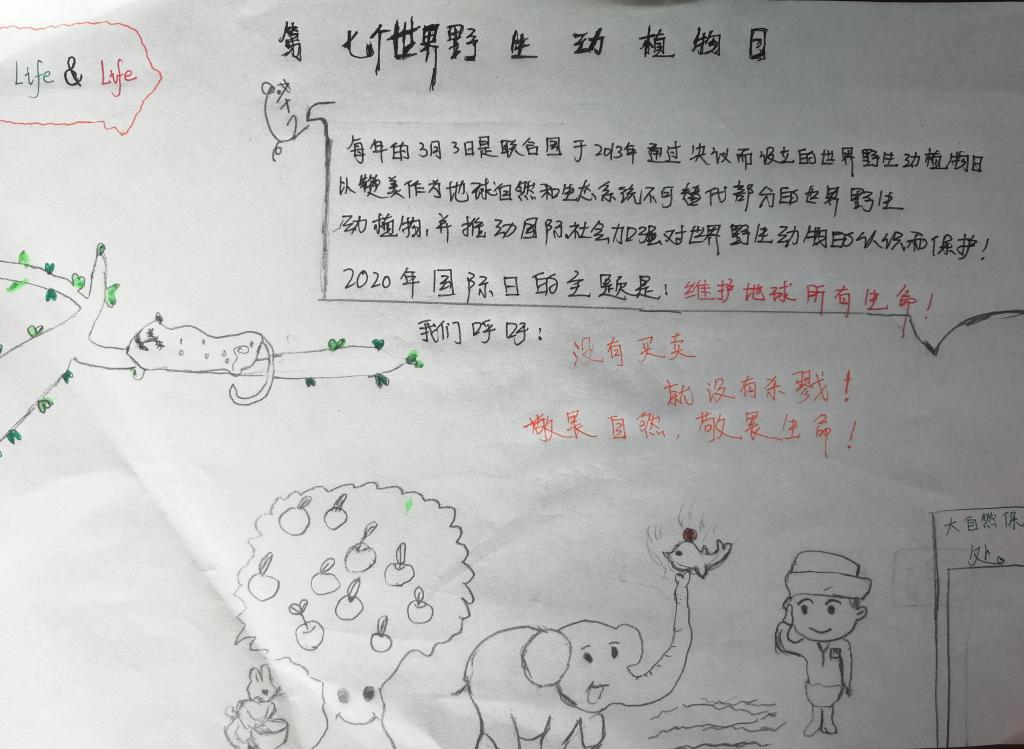 第七个世界野生动植物日
Life & Life
每年的3月3日是联合国于2013年通过决议而设立的世界野生动植物日
以赞美作为地球自然和生态系统不可替代部分的世界野生
动植物,并推动国际社会加强对世界野生动物的认识和保护!
2020年国际日的主题是:维护地球所有生命!
我们呼吁:
没有买卖
就没有杀戮!
敬畏自然,敬畏生命!
大自然保
处。